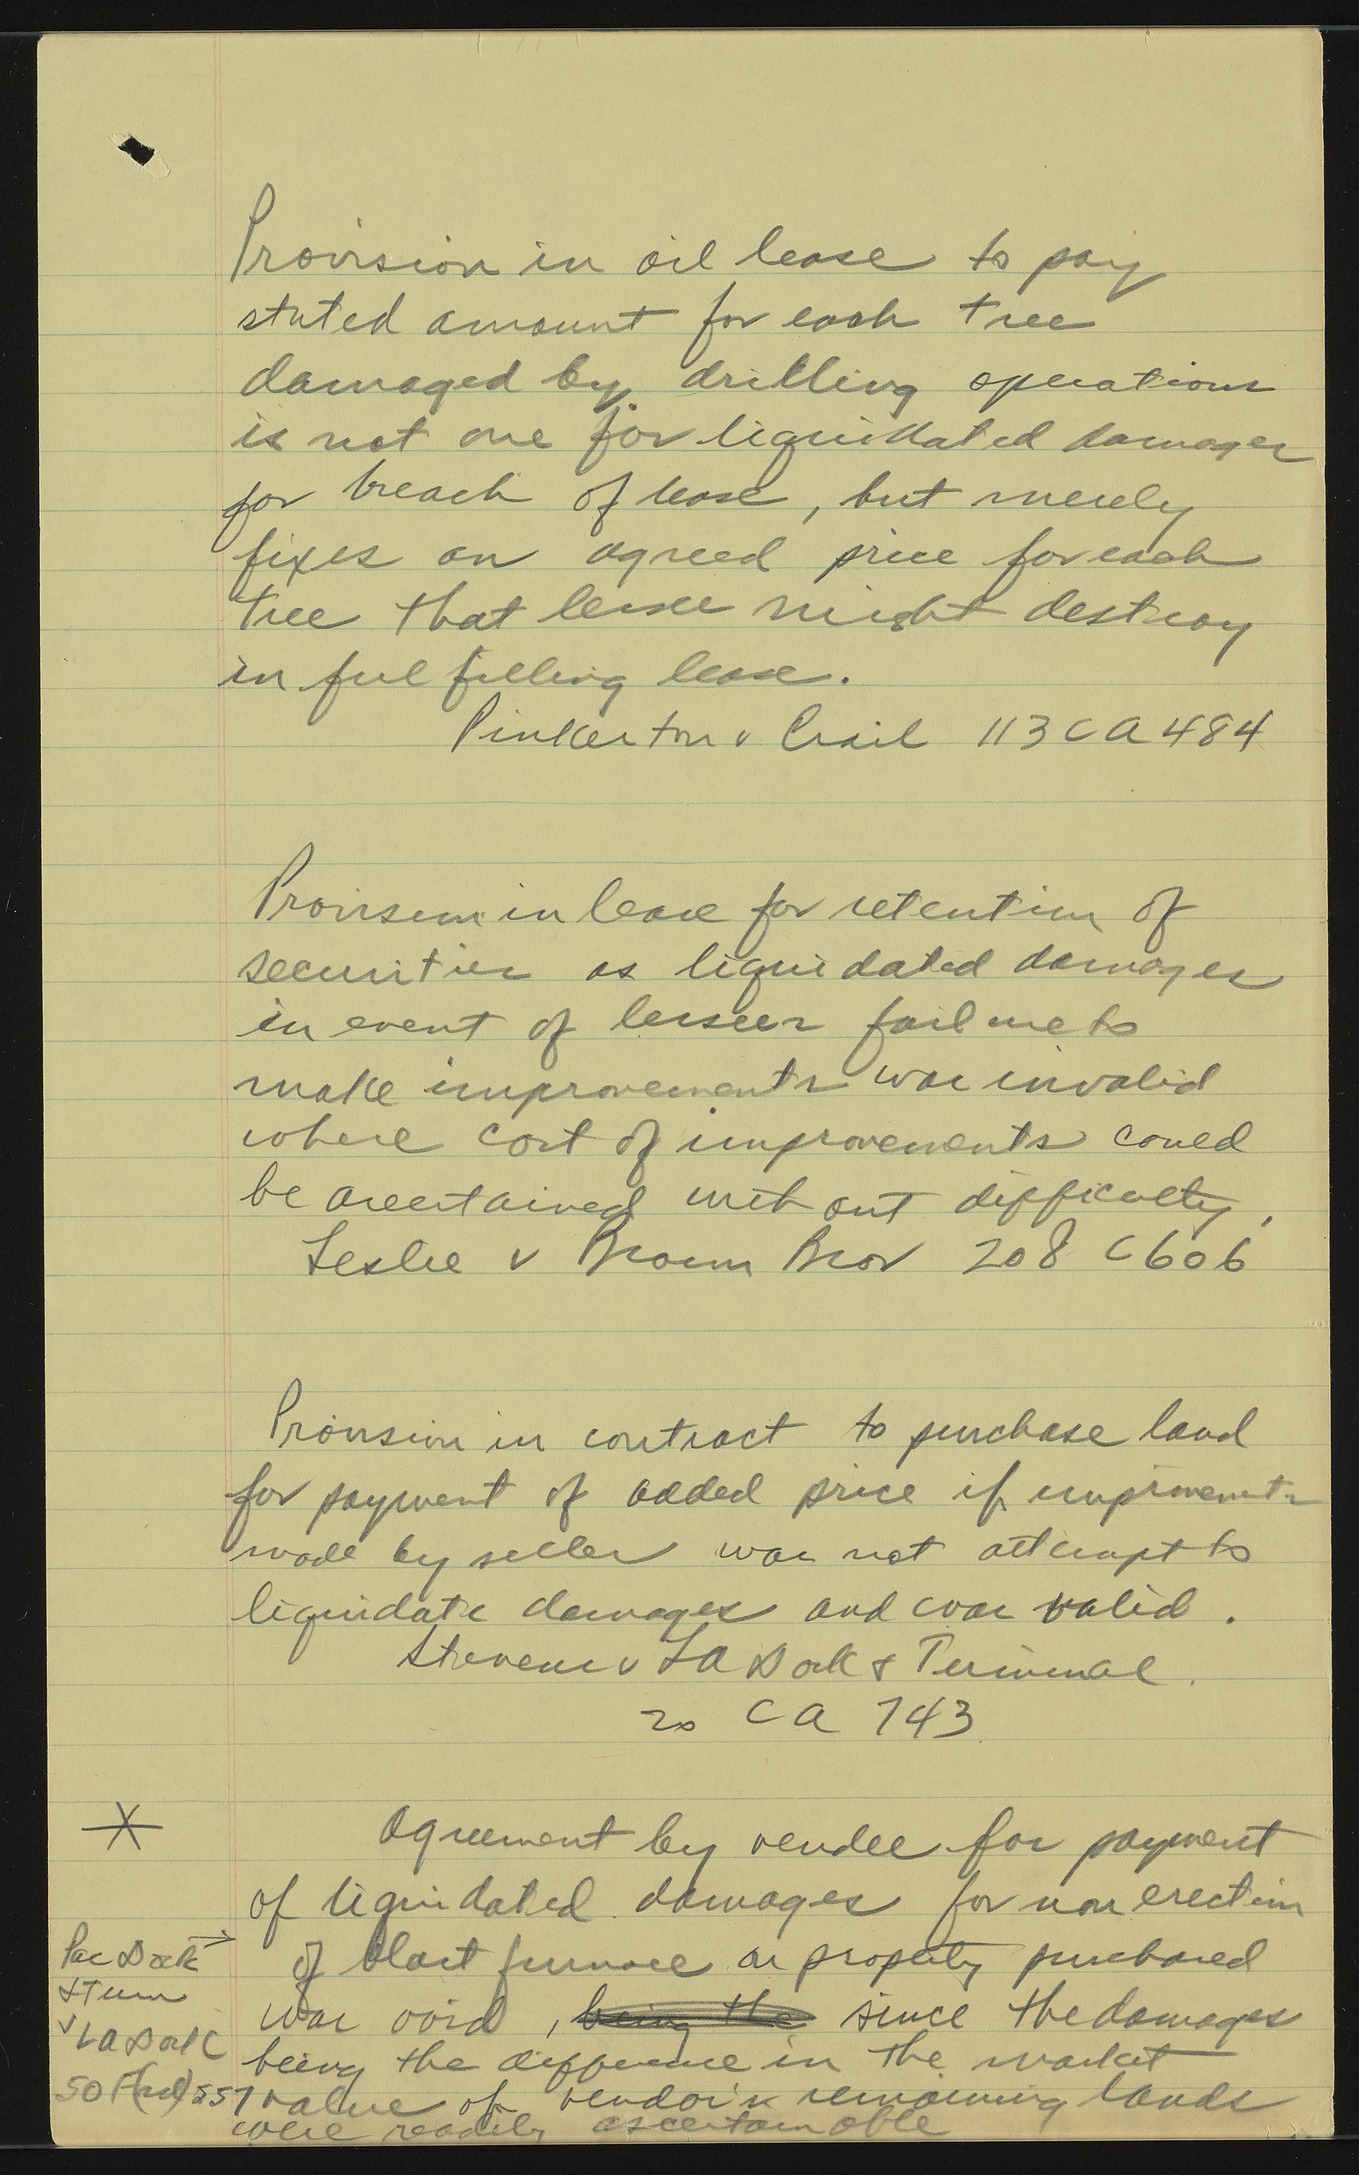 Provision in oil lease to pay
stated amount for each tree
damaged by drilling operations
is not one for liquidated damages
for breach of lease, but merely
fixes an agreed price for each
tree that lessee might destroy
in fulfilling lease.
Pinkerton v Crail 113 CA 484
Provision in lease for retention of
securities as liquidated damages
in event of lessees failure to
make improvements was invalid
where cost of improvements could
be ascertained without difficulty,
Leslie v Brown Bros 208 C 606
Provision in contract to purchase land
for payment of added price if improvements
made by seller was not attempt to
liquidate damages and was valid.
Stevens v LA Dock & Terminal.
20 CA 743
*
Agreement by vendee for payment
of liquidated damages for non erection
of blast furnace on property purchased
was void, being the since the damages
being the difference in the market
value of vendor's remaining lands
were readily ascertainable
Pac Dock →
& Term
v LA Dock C
50 F(2nd) 557